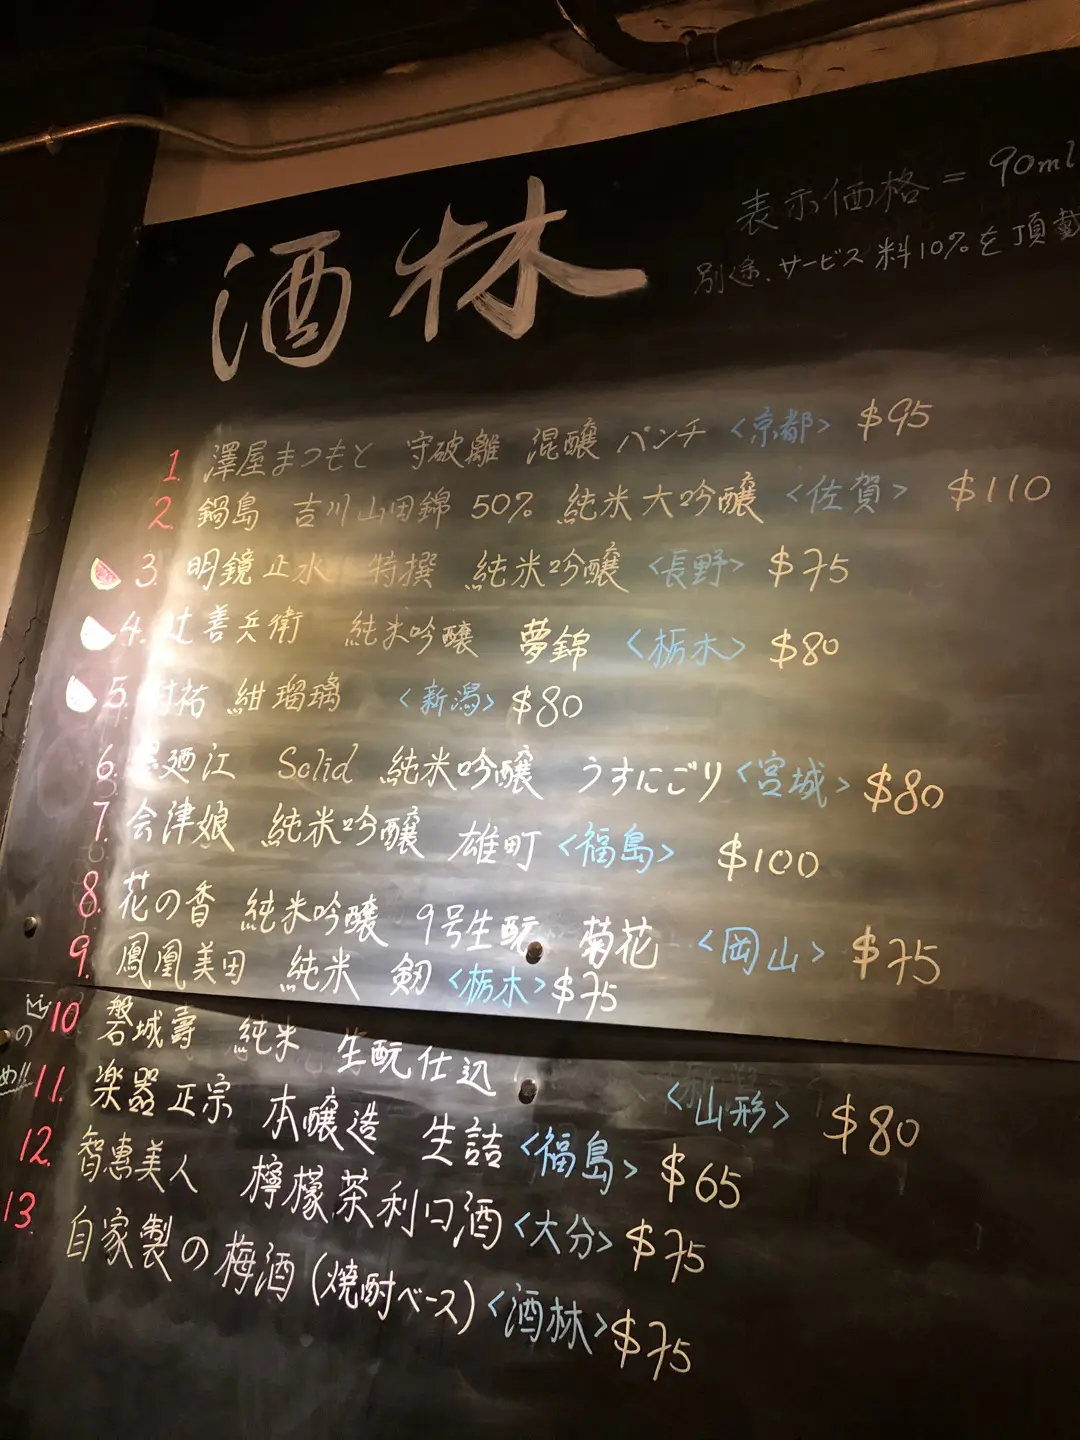 酒林
表示価格 = 90ml
別途、サービス料10%を頂戴
1. 澤屋まつもと 守破離 混醸 パンチ <京都> $95
2. 鍋島 吉川山田錦 50% 純米大吟醸 <佐賀> $110
3. 明鏡止水 特撰 純米吟醸 <長野> $75
4. 辻善兵衛 純米吟醸 夢錦 <栃木> $80
5. 村祐 紺瑠璃 <新潟> $80
6. 墨廼江 Solid 純米吟醸 うすにごり <宮城> $80
7. 会津娘 純米吟醸 雄町 <福島> $100
8. 花の香 純米吟醸 9号生酛 菊花 <岡山> $75
9. 鳳凰美田 純米 剱 <栃木> $75
10 磐城壽 純米 生酛仕込 <山形> $80
の
め!! 11. 楽器正宗 本醸造 生詰 <福島> $65
12. 智恵美人 檸檬茶利口酒 <大分> $75
13. 自家製の梅酒 (焼酎ベース) <酒林> $75